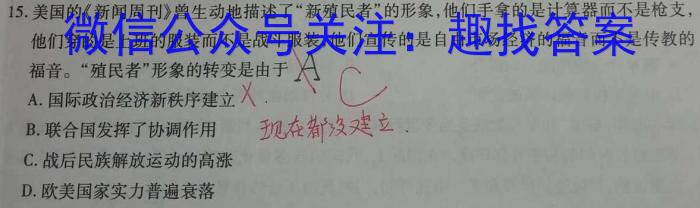 15.美国的《新闻周刊》曾生动地描述了“新殖民者”的形象，他们手拿的是计算器而不是枪支，
他们穿的是上班的服装而不是战斗服装，他们宣传的是自由市场经济的福音而不是传教的
微信公众号关注：趣找答案
福音。“殖民者”形象的转变是由于 A
C
A.国际政治经济新秩序建立 X
B.联合国发挥了协调作用
现在都没建立.
C.战后民族解放运动的高涨
D.欧美国家实力普遍衰落